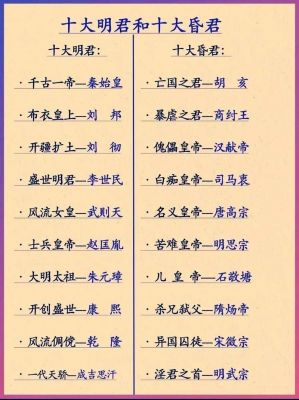 十大明君和十大昏君
十大明君:
·千古一帝—秦始皇
·布衣皇上—刘 邦
·开疆扩土—刘 彻
·盛世明君—李世民
·风流女皇—武则天
·士兵皇帝—赵匡胤
·大明太祖—朱元璋
·开创盛世—康 熙
·风流倜傥—乾 隆
·一代天骄—成吉思汗
十大昏君:
·亡国之君—胡 亥
·暴虐之君—商纣王
·傀儡皇帝—汉献帝
·白痴皇帝—司马衷
·名义皇帝—唐高宗
·苦难皇帝—明思宗
·儿 皇 帝—石敬塘
·杀兄弑父—隋炀帝
·异国囚徒—宋徽宗
·淫君之首—明武宗